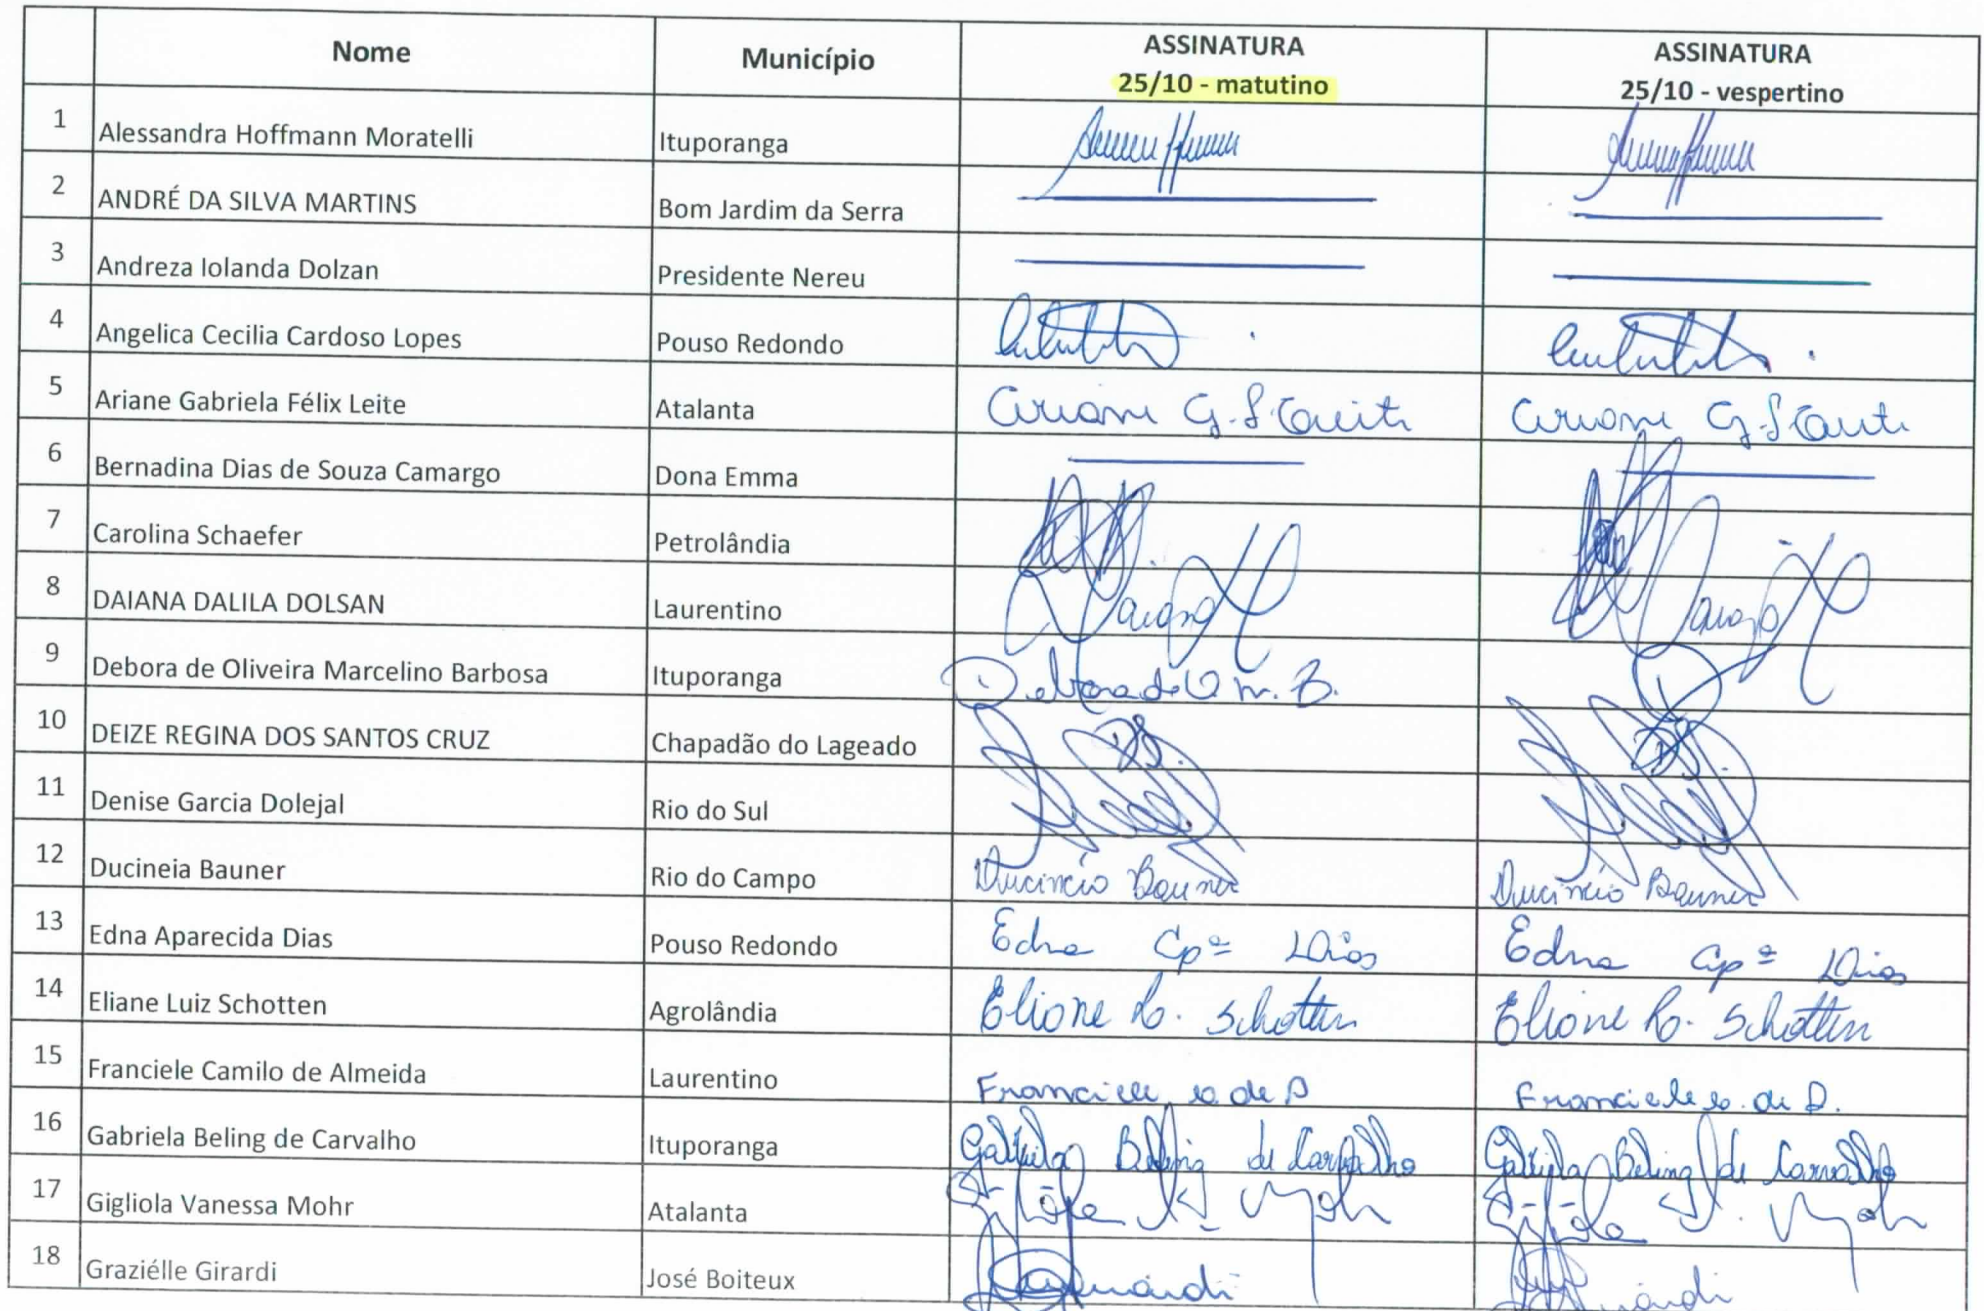 Nome Município ASSINATURA 25/10 - matutino ASSINATURA 25/10 - vespertino
1 Alessandra Hoffmann Moratelli Ituporanga
2 ANDRÉ DA SILVA MARTINS Bom Jardim da Serra
3 Andreza Iolanda Dolzan Presidente Nereu
4 Angelica Cecilia Cardoso Lopes Pouso Redondo
5 Ariane Gabriela Félix Leite Atalanta Ariane G. F. Leite Ariane G. F. Leite
6 Bernadina Dias de Souza Camargo Dona Emma
7 Carolina Schaefer Petrolândia
8 DAIANA DALILA DOLSAN Laurentino Daiana Daiana
9 Debora de Oliveira Marcelino Barbosa Ituporanga Debora de O m. B.
10 DEIZE REGINA DOS SANTOS CRUZ Chapadão do Lageado DS. DS.
11 Denise Garcia Dolejal Rio do Sul
12 Ducineia Bauner Rio do Campo Ducineia Bauner Ducineia Bauner
13 Edna Aparecida Dias Pouso Redondo Edna Apª Dias Edna Apª Dias
14 Eliane Luiz Schotten Agrolândia Eliane L. Schotten Eliane L. Schotten
15 Franciele Camilo de Almeida Laurentino Franciele c. de A Franciele c. de A.
16 Gabriela Beling de Carvalho Ituporanga Gabriela Beling de Carvalho Gabriela Beling de Carvalho
17 Gigliola Vanessa Mohr Atalanta Gigliola V. Mohr Gigliola V. Mohr
18 Graziélle Girardi José Boiteux